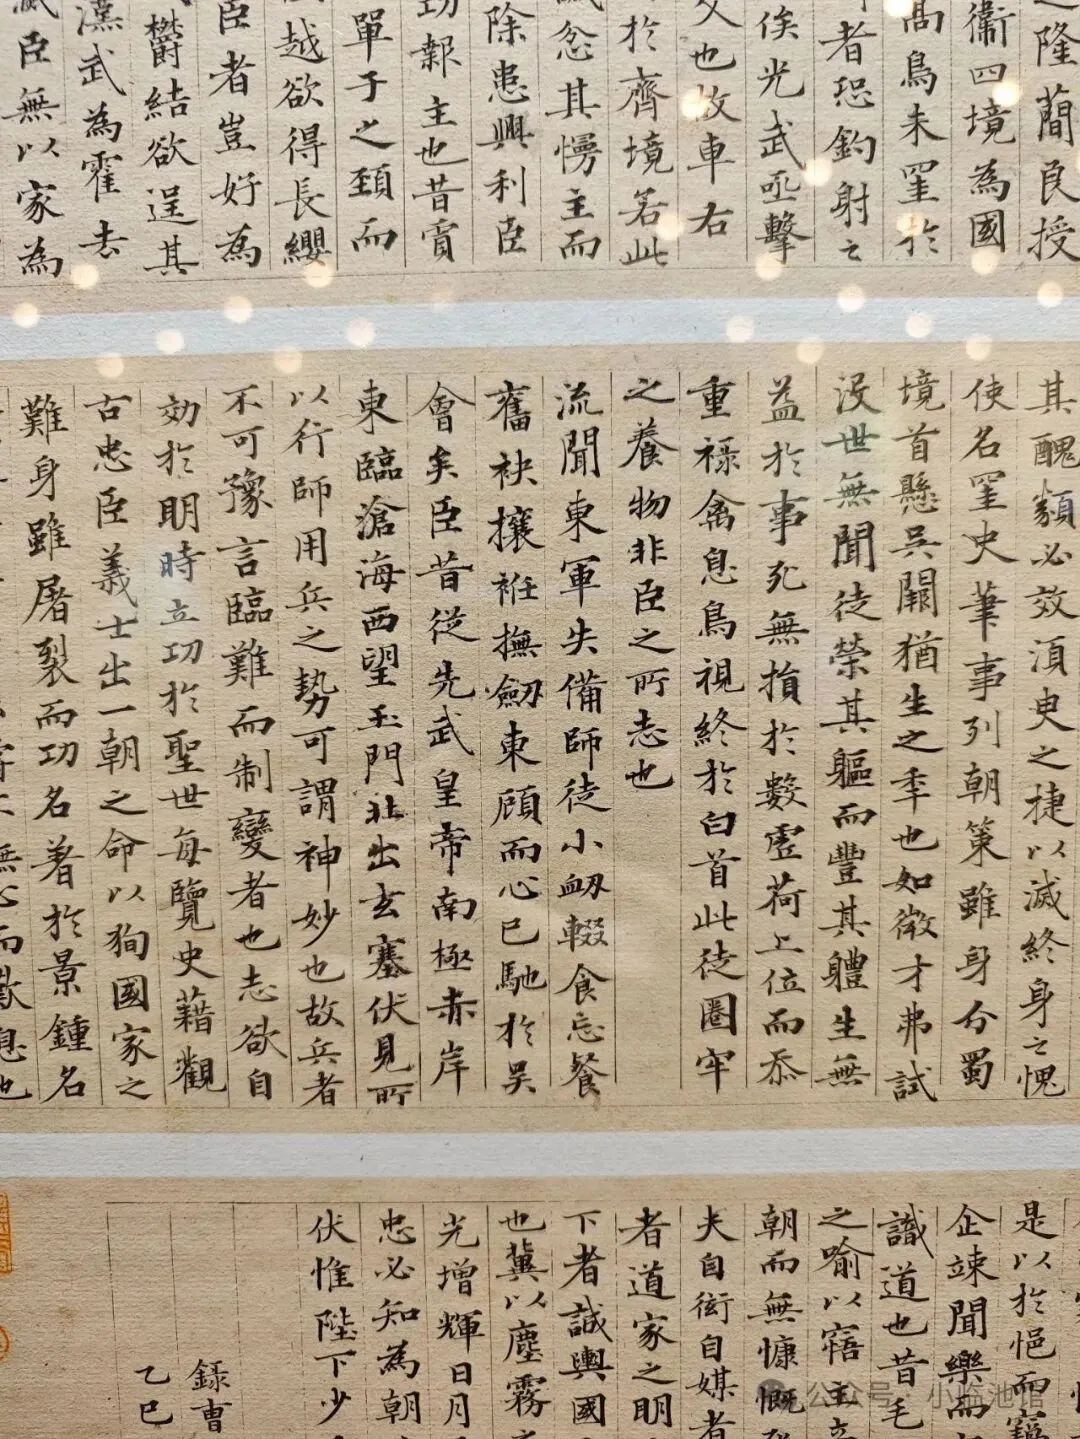 之隆蕑良授
衞四境為國
髙鳥未罣於
者恐釣射之
俟光武亟擊
父也故車右
於齊境若此
忿其慢主而
除患興利臣
功報主也昔賈
單于之頚而
越欲得長纓
臣者豈好為
欝結欲逞其
漢武為霍去
臣無以家為
其醜類必效湏臾之捷以滅終身之愧
使名罣史筆事列朝策雖身分蜀
境首懸吳闕猶生之年也如微才弗試
沒世無聞徒榮其軀而豐其體生無
益於事死無損於數虛荷上位而忝
重禄禽息鳥視終於白首此徒圈牢
之養物非臣之所志也
流聞東軍失備師徒小衂輟食忘餐
奮袂攘袵撫劒東顧而心已馳於吳
會矣臣昔從先武皇帝南極赤岸
東臨滄海西望玉門北出玄塞伏見所
以行師用兵之勢可謂神妙也故兵者
不可豫言臨難而制變者也志欲自
効於明時立功於聖世每覽史藉觀
古忠臣義士出一朝之命以狥國家之
難身雖屠裂而功名著於景鍾名
是以於悒而竊
企竦聞樂而
識道也昔毛
之喻以寤主立
朝而無慷慨
夫自衒自媒者
者道家之明
下者誠與國
也冀以塵霧
光增輝日月
忠必知為朝
伏惟陛下少
錄曹
乙巳
公众号·小临池馆